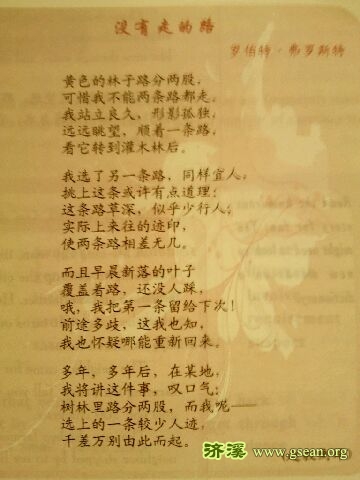 没有走的路
罗伯特·弗罗斯特
黄色的林子路分两股，
可惜我不能两条路都走。
我站立良久，形影孤独，
远远眺望，顺着一条路，
看它转到灌木林后。
我选了另一条路，同样宜人，
挑上这条或许有点道理：
这条路草深，似乎少行人；
实际上来往的迹印，
使两条路相差无几。
而且早晨新落的叶子
覆盖着路，还没人踩，
哦，我把第一条留给下次！
前途多歧，这我也知，
我也怀疑哪能重新回来。
多年，多年后，在某地，
我将讲这件事，叹口气：
树林里路分两股，而我呢——
选上的一条较少人迹，
千差万别由此而起。
济溪
www.gsean.org